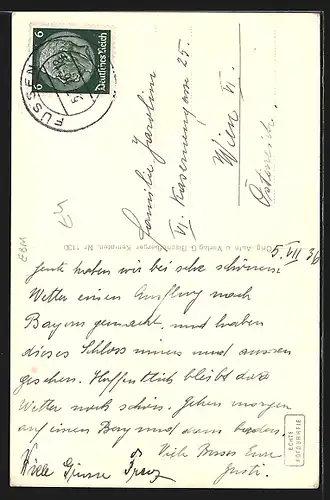 6 6
Deutsches Reich
FÜSSEN
Familie Jarolim
VI. Kasernengasse 25.
Wien VI.
Österreich.
Orig.-Aufn. u. Verlag G. Kempten. Nr. 1130
EBM
5. VII 36
haben wir bei sehr schönem
Wetter einen Ausflug nach
Bayern gemacht, und haben
dieses Schloss innen und aussen
gesehen. Hoffentlich bleibt das
Wetter noch schön. Gehen morgen
auf einen Berg und dann baden.
Viele Grüsse Franz
Viele Busse Eure
Gusti.
ECHTE
FOTOGRAFIE